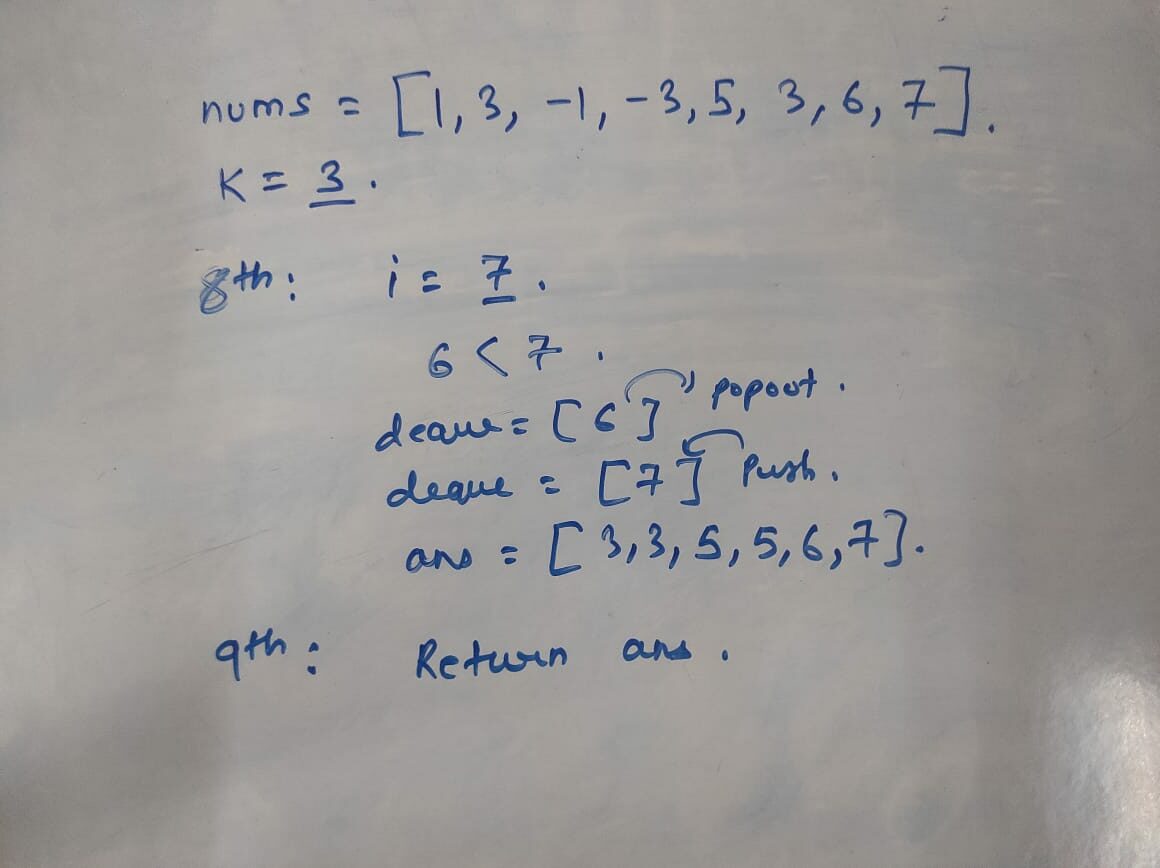 nums = [1, 3, -1, -3, 5, 3, 6, 7].
K = 3.
8th: i = 7.
6 < 7.
deque = [6] popout.
deque = [7] Push.
ans = [3,3,5,5,6,7].
9th: Return ans.